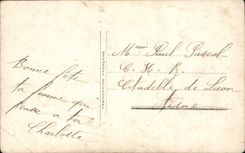 Bonne fête
ta femme qui
pense a toi
Charlotte
Paul Pascal
C. H. R.
Citadelle de Laon
Aisne